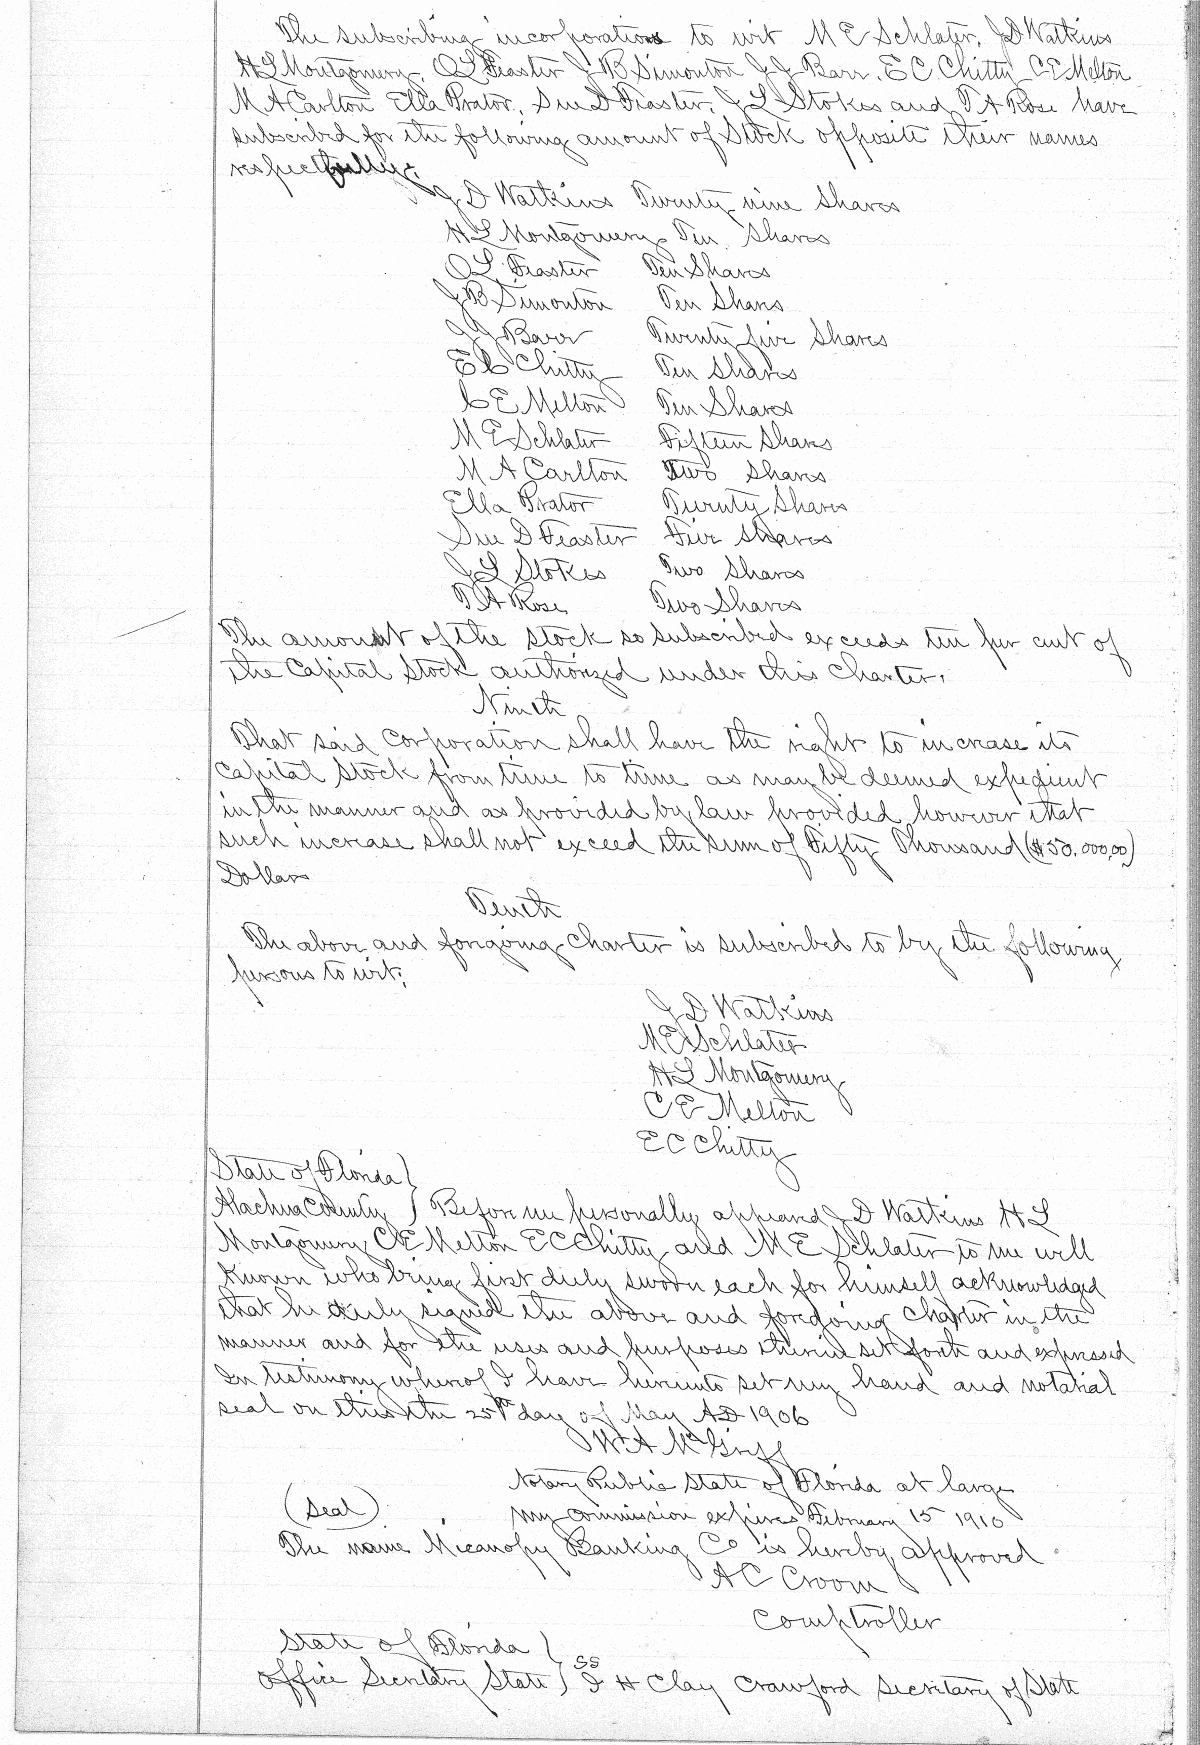 The subscribing incorporators to wit M E Schlater, J D Watkins
H L Montgomery, O L Feaster J B Simonton J J Barr, E C Chitty C E Melton
M A Carlton Ella Prator, Sue D Feaster, J L Stokes and T A Rose have
subscribed for the following amount of Stock opposite their names
respectfully:
J D Watkins Twenty nine Shares
H L Montgomery Ten Shares
O L Feaster Ten Shares
J B Simonton Ten Shares
J J Barr Twenty five Shares
E C Chitty Ten Shares
C E Melton Ten Shares
M E Schlater Fifteen Shares
M A Carlton Two Shares
Ella Prator Twenty Shares
Sue D Feaster Five Shares
J L Stokes Two Shares
T A Rose Two Shares
The amount of the Stock so subscribed exceeds ten per cent of
the Capital Stock authorized under this Charter.
Ninth
That said Corporation shall have the right to increase its
Capital Stock from time to time as may be deemed expedient
in the manner and as provided by law provided, however that
such increase shall not exceed the sum of Fifty Thousand ($50,000.00)
Dollars
Tenth
The above and foregoing Charter is subscribed to by the following
persons to wit;
J D Watkins
M E Schlater
H L Montgomery
C E Melton
E C Chitty
State of Florida }
Alachua County } Before me personally appeared J D Watkins H L
Montgomery C E Melton E C Chitty and M E Schlater to me well
known who being first duly sworn each for himself acknowledged
that he duly signed the above and foregoing Charter in the
manner and for the uses and purposes therein set forth and expressed
In testimony whereof I have hereunto set my hand and notarial
seal on this the 25th day of May AD 1906
W A McGriff
Notary Public State of Florida at large
(Seal) my commission expires February 15 1910
The name Micanopy Banking Co is hereby approved
A C Croom
Comptroller
State of Florida }
Office Secretary State } SS I H Clay Crawford Secretary of State